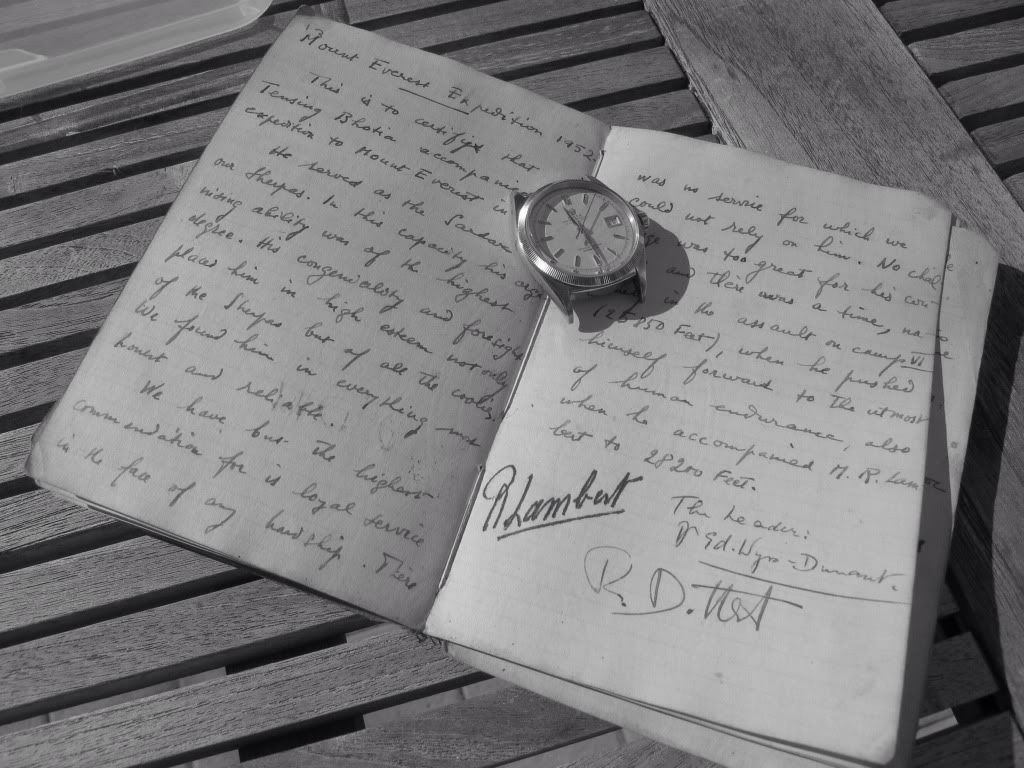 Mount Everest Expedition 1952
This is to certify that
Tensing Bhotia accompanied
expedition to Mount Everest in
He served as the Sardar
our Sherpas. In this capacity his
nising ability was of the highest
degree. His congeniality and foresight
place him in high esteem not only
of the Sherpas but of all the coolies
We found him in everything
honest and reliable.
We have but the highest
commendation for is loyal service
in the face of any hardship. There
was no service for which we
could not rely on him. No
was too great for his
and there was a time,
in the assault on camp VI
Feet), when he pushed
himself forward to the utmost
of human endurance, also
when he accompanied M. R. Lam
bert to 28200 Feet.
The Leader:
Dr Ed. Wyss-Dunant.
RLambert
R. Dittert